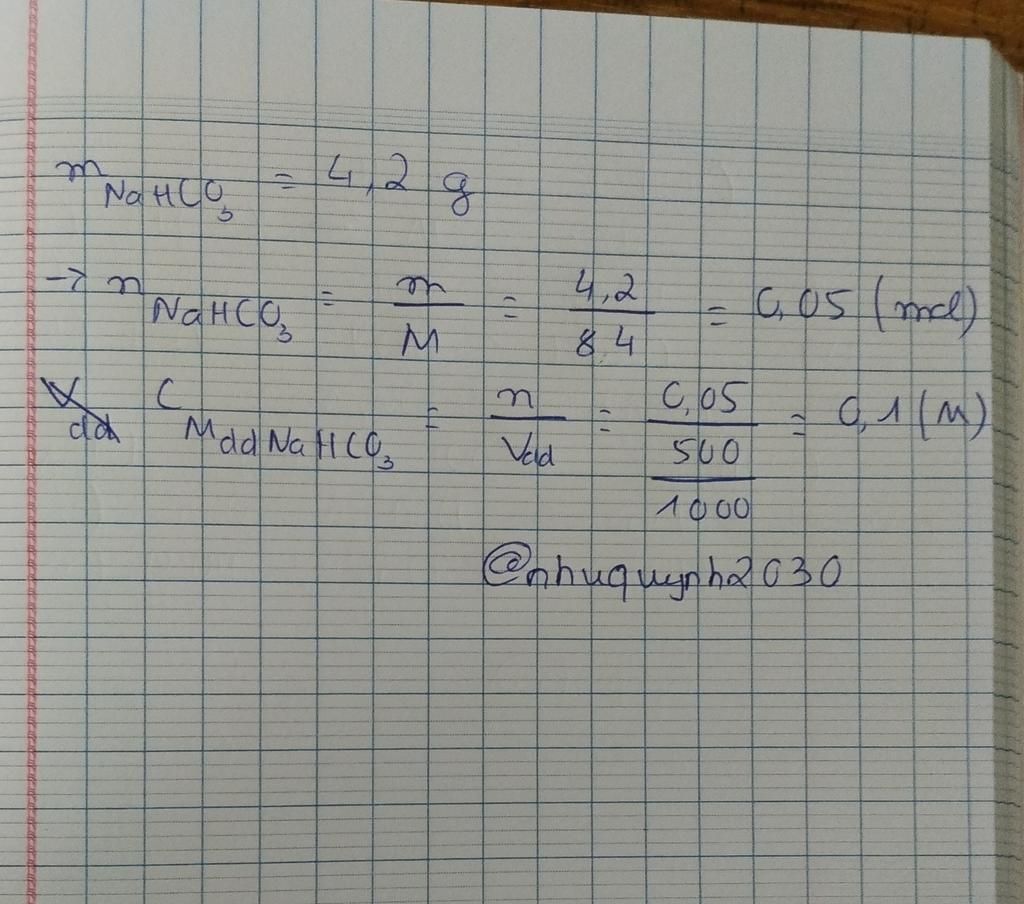 m NaHCO₃ = 4,2 g
→ n NaHCO₃ = m/M = 4,2/84 = 0,05 (mol)
C M dd NaHCO₃ = n/Vdd = 0,05/(500/1000) = 0,1 (M)
@nhuquynh2030